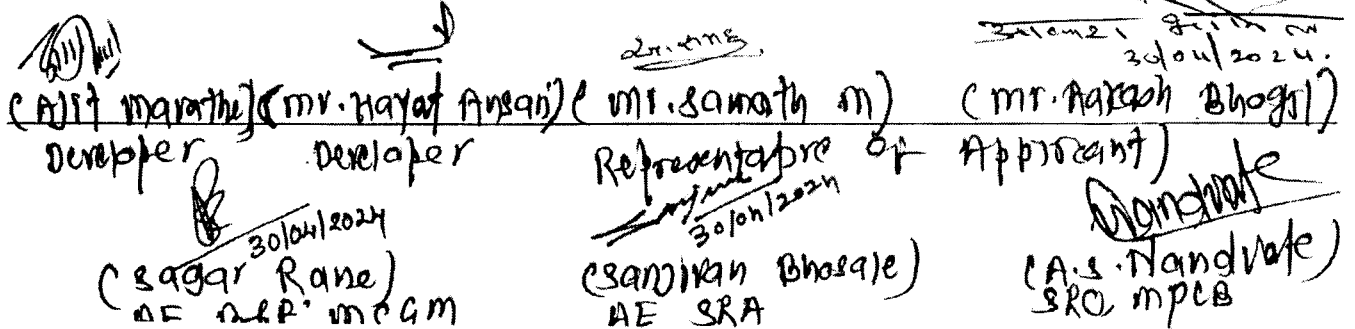 30/04/2024.
(Ajit Marathe) (mr. Hayat Ansari) ( mr. Samath m) (mr. Aakash Bhogil)
Developer Developer Representative of Applicant)
30/04/2024 30/04/2024 Nandvate
(Sagar Rane) (Sanjivan Bhosale) (A.S. Nandvate)
AE MCGM AE SRA SRO, MPCB